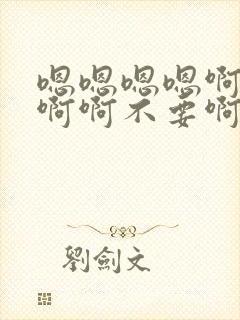 嗯嗯嗯嗯啊
啊啊不要啊
劉劍文